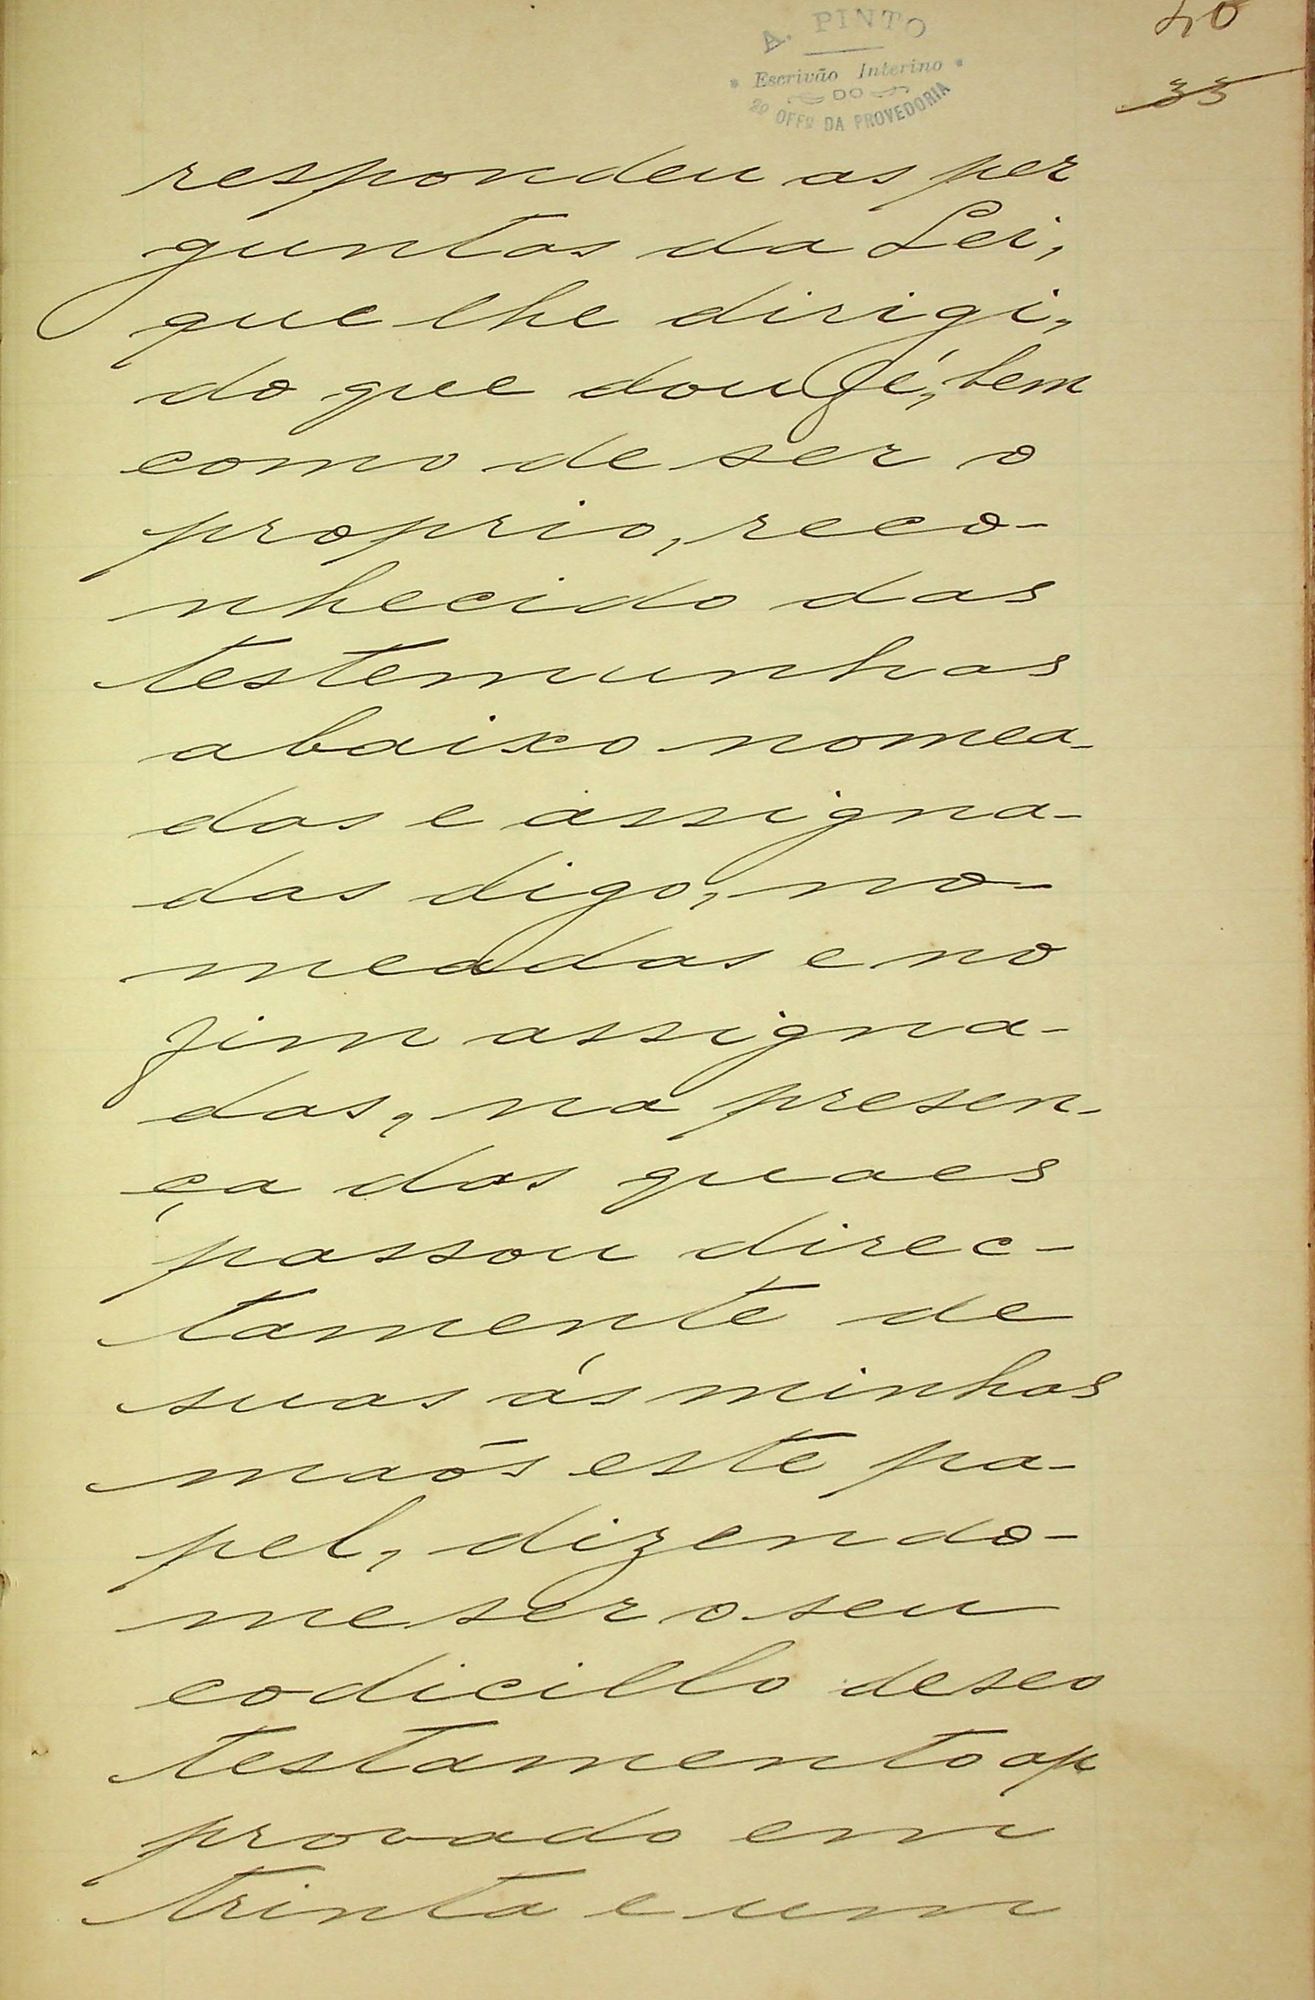 A. PINTO
Escrivão Interino
DO
2º OFFº DA PROVEDORIA
40
35
respondeu as per
guntas da Lei,
que lhe dirigi,
do que dou fé, bem
como de ser o
proprio, reco-
nhecido das
testemunhas
abaixo nomea-
das e assigna-
das digo, no-
meadas e no
fim assigna-
das, na presen-
ça das quaes
passou direc-
tamente de
suas ás minhas
maõs este pa-
pel, dizendo-
me ser o seu
codicillo de seo
testamento ap
provado em
trinta e um